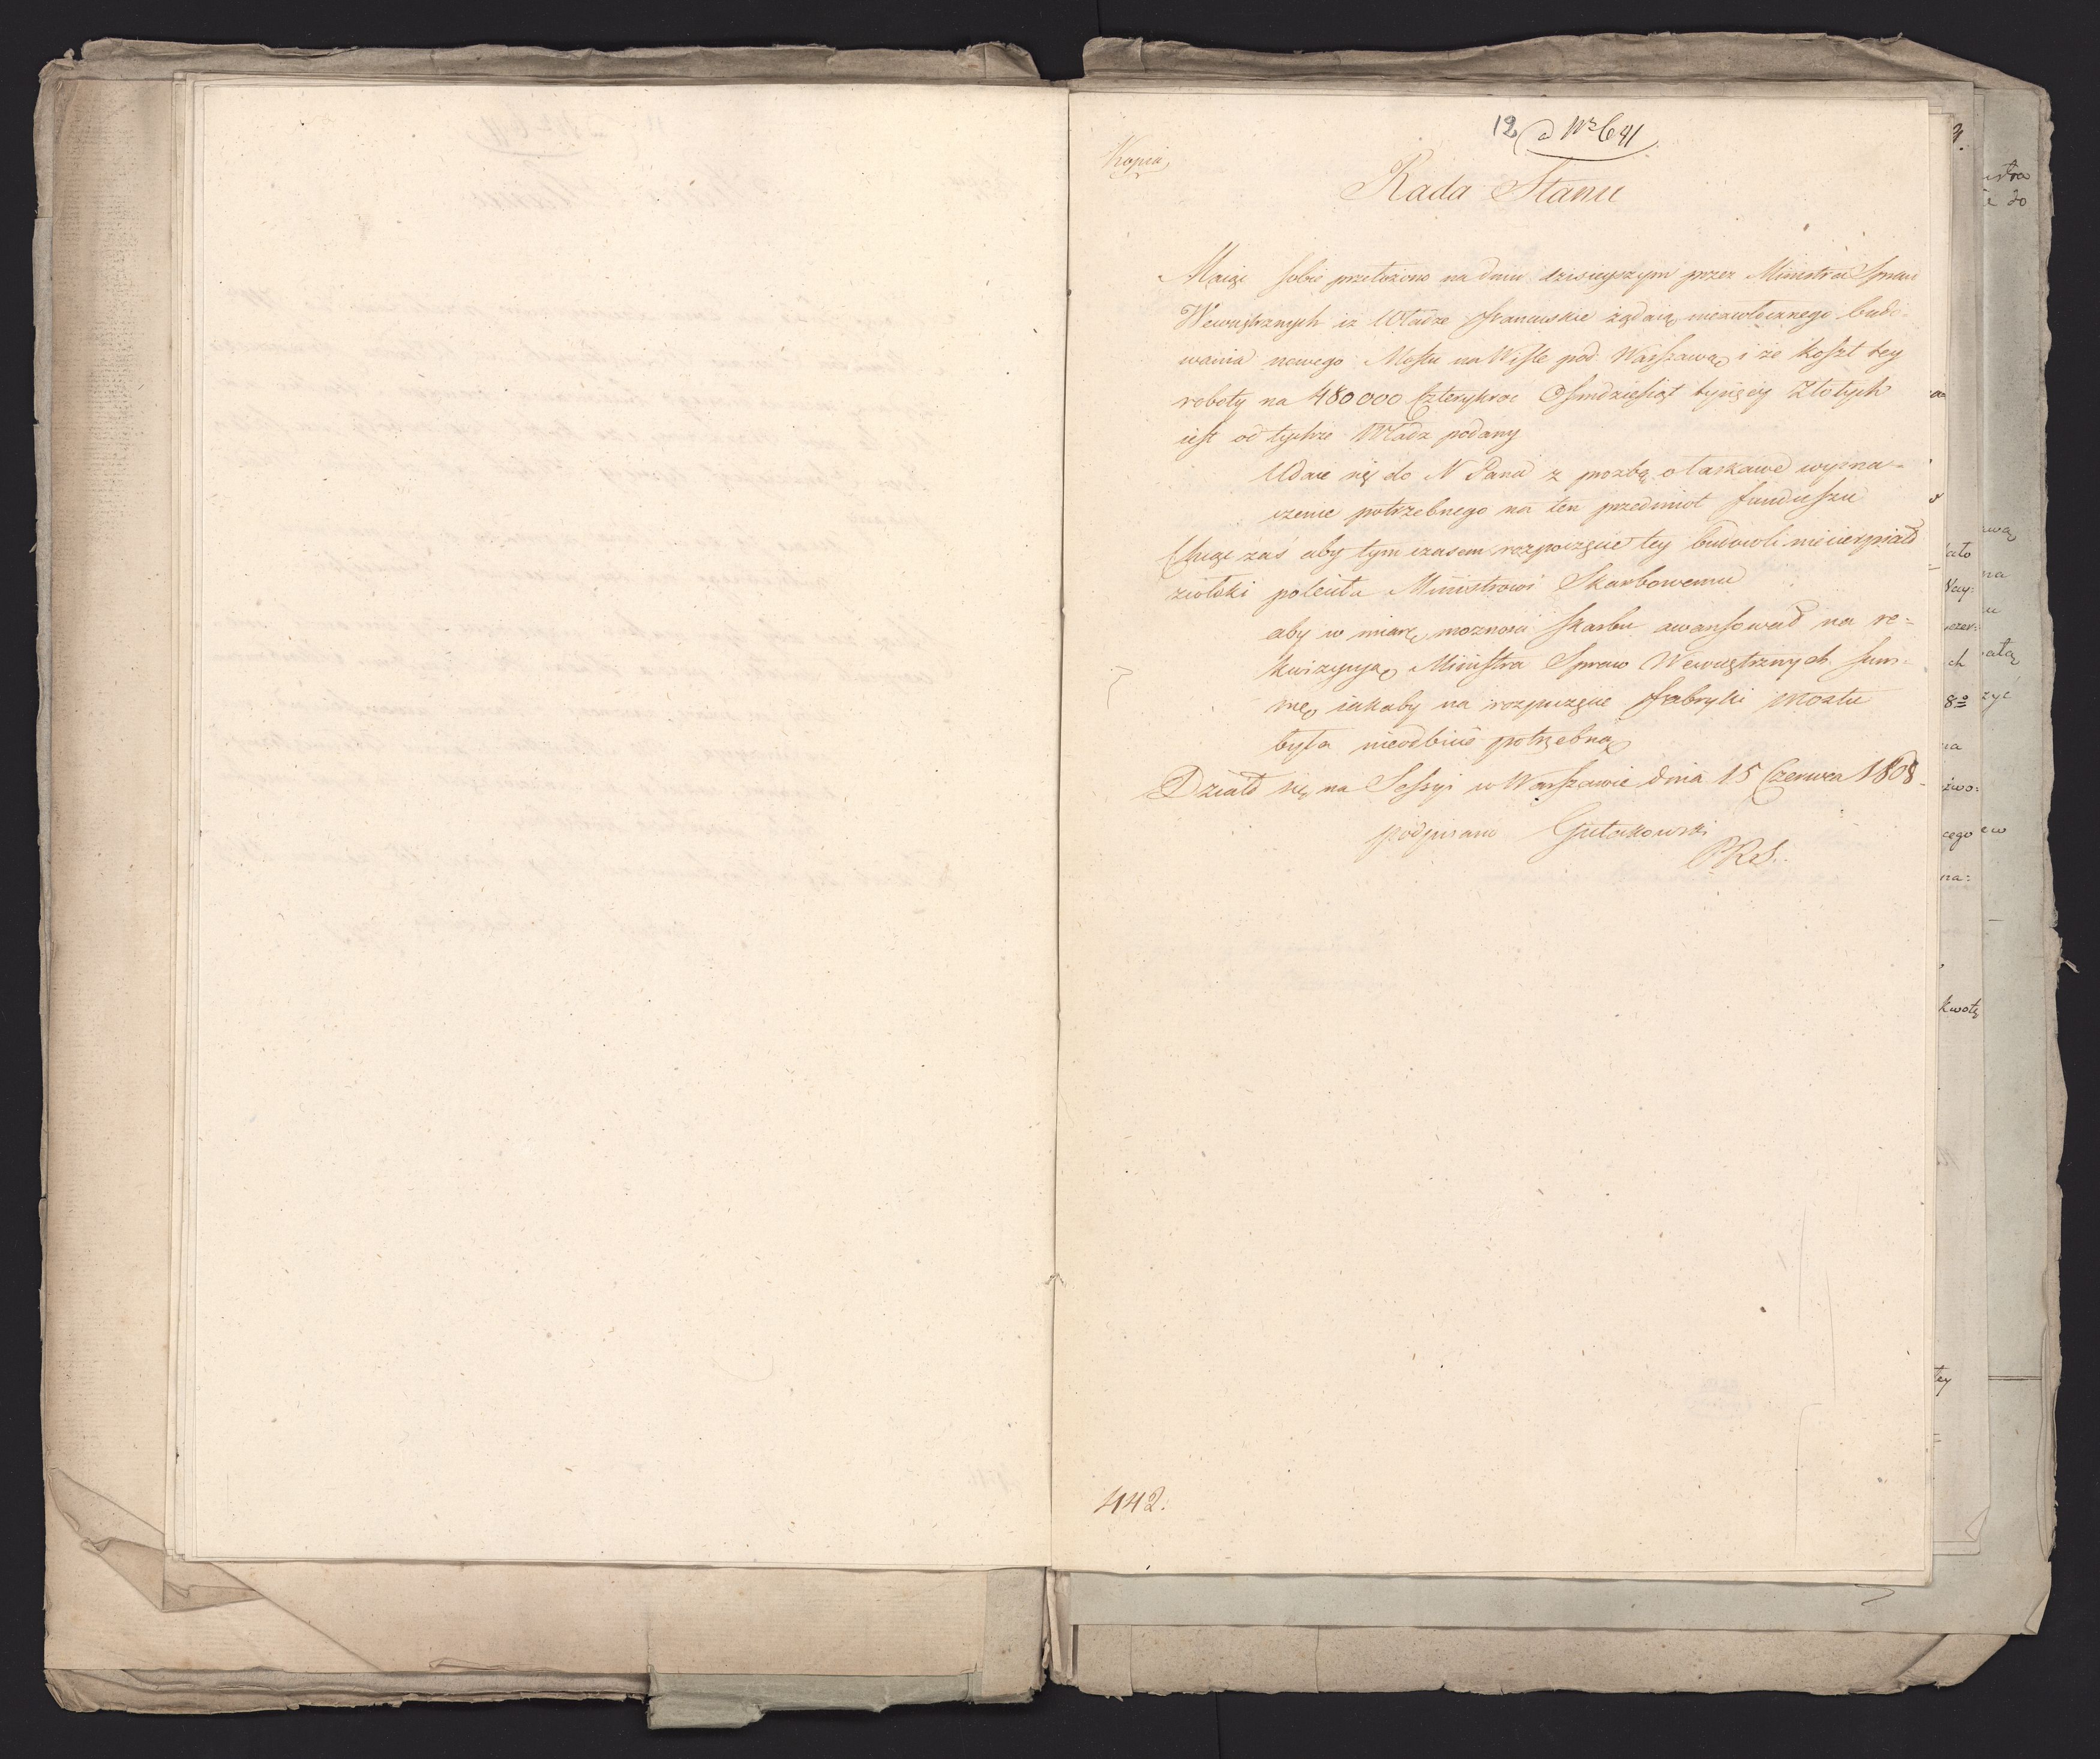 12 ad Nr 641
Kopia,
Rada Stanu
Maiąc sobie przełożono na dniu dzisieyszym przez Ministra Spraw
Wewnętrznych iz Władze francuskie żądaią niezwłocznego budo-
wania nowego Mostu na Wiśle pod Warszawą i że koszt tey
roboty na 480000 Czterykroc Osmdziesiąt tysięcy Złotych
iest od tychże Władz podany
Udaie się do N Pana z prozbą o łaskawe wyzna-
czenie potrzebnego na ten przedmiot funduszu
Chcąc zaś aby tym czasem rozpoczęcie tey budowli niecierpiało
zwłoki poleciła Ministrowi Skarbowemu
aby w miarę moznosci skarbu awansował na re-
kwizycyą Ministra Spraw Wewnętrznych sum-
mę iakaby na rozpoczęcie fabryki Mostu
była nieodbicie potrzebną
Działo się na Sessyi w Warszawie dnia 15 Czerwca 1808
podpisano Gutakowski
PRS.
442.